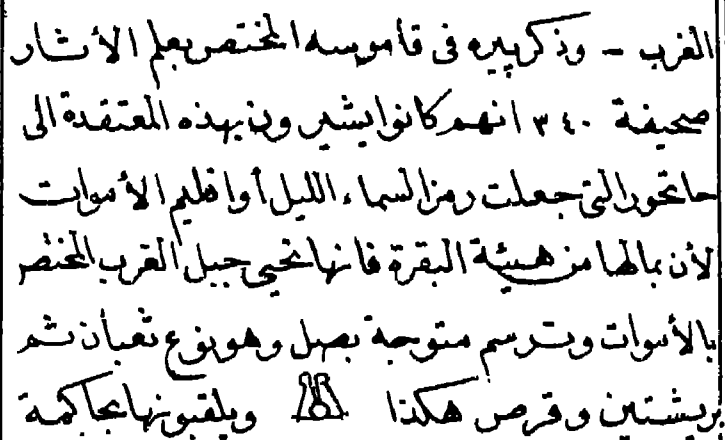 الغرب - وذكر پيره فى قاموسه المختصر بعلم الأثار
صحيفة ٣٤٠ انهم كانوا يشيرون بهذه المعتقدة الى
حاتحور التى جعلت رمز السماء الليل أو اقليم الأموات
لأن بمالها من هيئة البقرة فانها تحيى جبل الغرب المختص
بالأموات وترسم متوجة بصل وهو نوع ثعبان ثم
بريشتين وقرص هكذا ويلقبونها بحاكمة